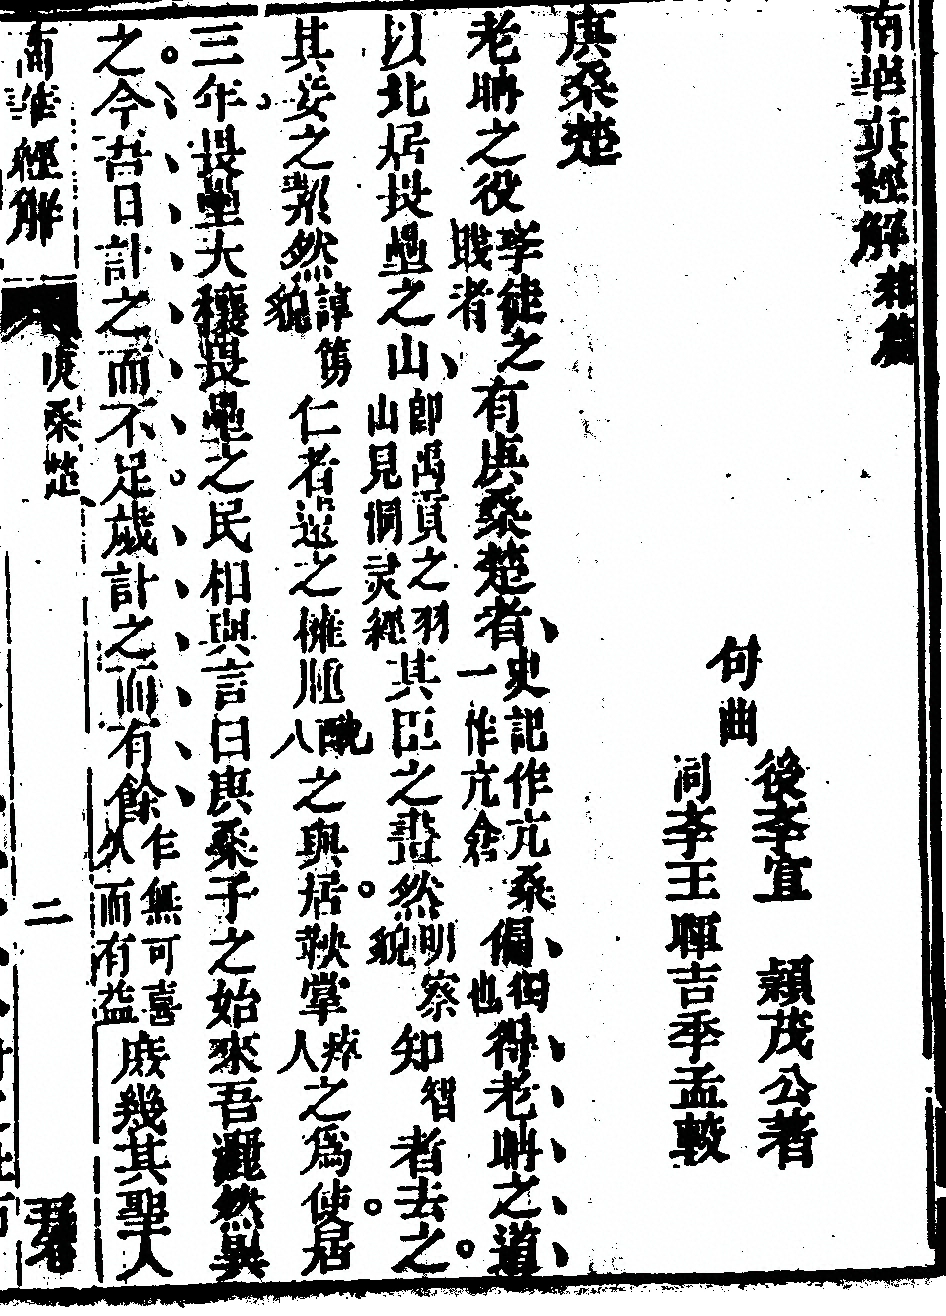 南華真經解雜篇
句曲
後學宣 穎茂公著
同學王暉吉季孟較
庚桑楚
老聃之役學徒之賤者有庚桑楚者史記作亢桑一作亢倉偏獨也得老聃之道
以北居畏壘之山即禹貢之羽山見洞灵經其臣之畫然明察貌知智者去之
其妾之絜然諄篤貌仁者遠之擁腫醜八之與居鞅掌瘁人之為使居
三年畏壘大穰畏壘之民相與言曰庚桑子之始來吾灑然異
之今吾日計之而不足歲計之而有餘乍無可喜久而有益庶幾其聖人
南華經解 庚桑楚 二